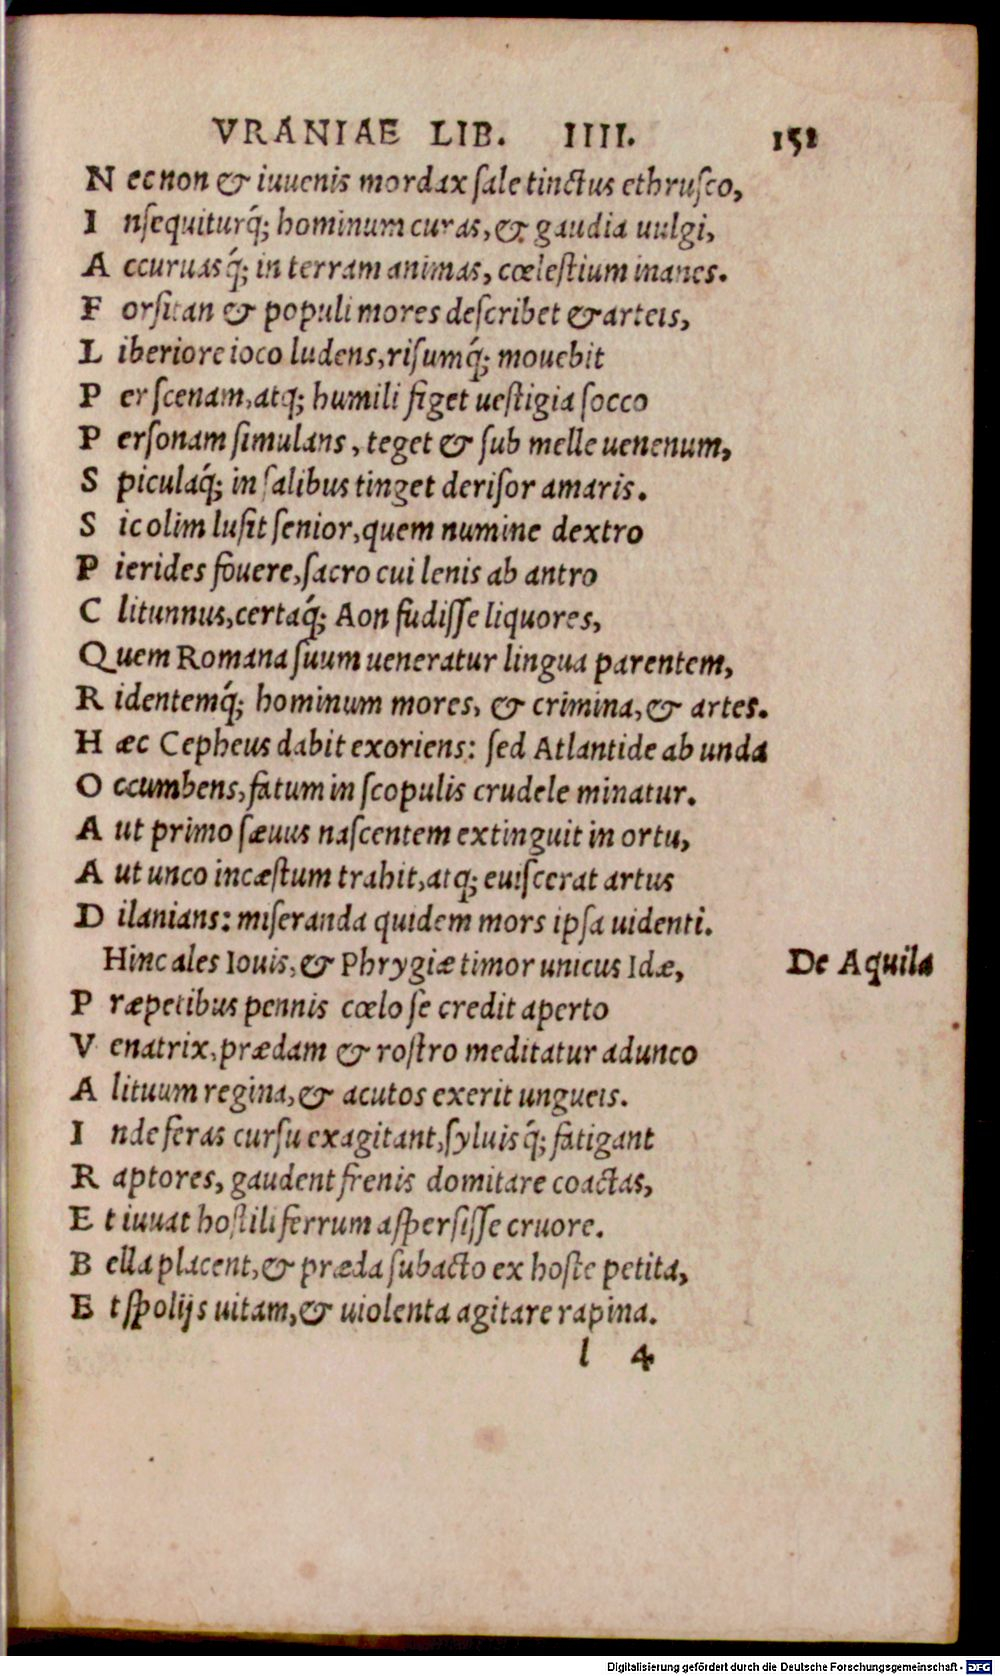 VRANIAE LIB. IIII. 152
N ec non & iuuenis mordax ſale tinctus ethruſco,
I nſequiturq́; hominum curas, & gaudia uulgi,
A ccuruasq́; in terram animas, cœleſtium inanes.
F orſitan & populi mores deſcribet & arteis,
L iberiore ioco ludens, riſumq́; mouebit
P er ſcenam, atq; humili figet ueſtigia ſocco
P erſonam ſimulans, teget & ſub melle uenenum,
S piculaq́; in ſalibus tinget deriſor amaris.
S ic olim luſit ſenior, quem numine dextro
P ierides fouere, ſacro cui lenis ab antro
C litunnus, certaq́; Aon fudiſſe liquores,
Quem Romana ſuum ueneratur lingua parentem,
R identemq́; hominum mores, & crimina, & artes.
H æc Cepheus dabit exoriens: ſed Atlantide ab unda
O ccumbens, fatum in ſcopulis crudele minatur.
A ut primo ſæuus naſcentem extinguit in ortu,
A ut unco incæſtum trahit, atq; euiſcerat artus
D ilanians: miſeranda quidem mors ipſa uidenti.
Hinc ales Iouis, & Phrygiæ timor unicus Idæ, De Aquila
P ræpetibus pennis cœlo ſe credit aperto
V enatrix, prædam & roſtro meditatur adunco
A lituum regina, & acutos exerit ungueis.
I nde feras curſu exagitant, ſyluisq́; fatigant
R aptores, gaudent frenis domitare coactas,
E t iuuat hoſtili ferrum aſperſiſſe cruore.
B ella placent, & præda ſubacto ex hoſte petita,
E t ſpolijs uitam, & uiolenta agitare rapina.
l 4
Digitalisierung gefördert durch die Deutsche Forschungsgemeinschaft - DFG